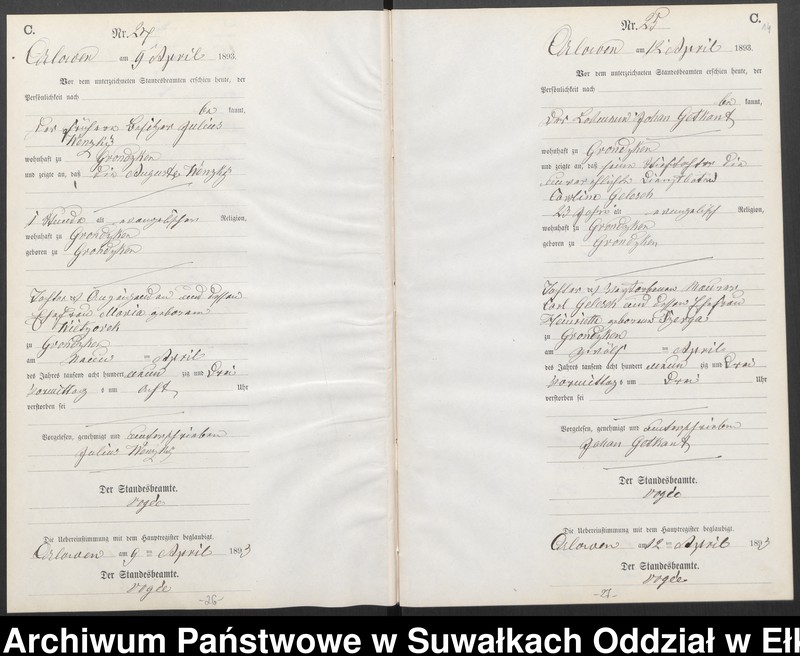 C.
Nr. 24
Orlowen am 9 April 1893.
Vor dem unterzeichneten Standesbeamten erschien heute, der
Persönlichkeit nach
be kannt,
der frühere Besitzer Julius
Wenzky
wohnhaft zu Grondzken
und zeigte an, daß die Auguste Wenzky
1 Stunde alt evangelischer Religion,
wohnhaft zu Grondzken
geboren zu Grondzken
Tochter des und dessen
Ehefrau Maria geborenen
zu Grondzken
am neun ten April
des Jahres tausend acht hundert neun zig und Drei
Vormittags um acht Uhr
verstorben sei
Vorgelesen, genehmigt und unterschrieben
Julius Wenzky
Der Standesbeamte.
Vogée
Die Uebereinstimmung mit dem Hauptregister beglaubigt.
Orlowen am 9 ten April 1893
Der Standesbeamte.
Vogée
-26-
C.
Nr. 25
Orlowen am 12 April 1893.
Vor dem unterzeichneten Standesbeamten erschien heute, der
Persönlichkeit nach
be kannt,
der Losmann Johan Gotkant
wohnhaft zu Grondzken
und zeigte an, daß seine Stieftochter die
unverehlichte Dienstbotin
Carline Gelesch
23 Jahre alt evangelisch Religion,
wohnhaft zu Grondzken
geboren zu Grondzken
Tochter des verstorbenen Maurer
Carl Gelesch und dessen Ehefrau
Henriette geborenen
zu Grondzken
am zwölf ten April
des Jahres tausend acht hundert neun zig und Drei
Vormittags um Drei Uhr
verstorben sei
Vorgelesen, genehmigt und unterschrieben
Johan Gotkant
Der Standesbeamte.
Vogée
Die Uebereinstimmung mit dem Hauptregister beglaubigt.
Orlowen am 12 ten April 1893
Der Standesbeamte.
Vogée
-27-
Archiwum Państwowe w Suwałkach Oddział w Eł